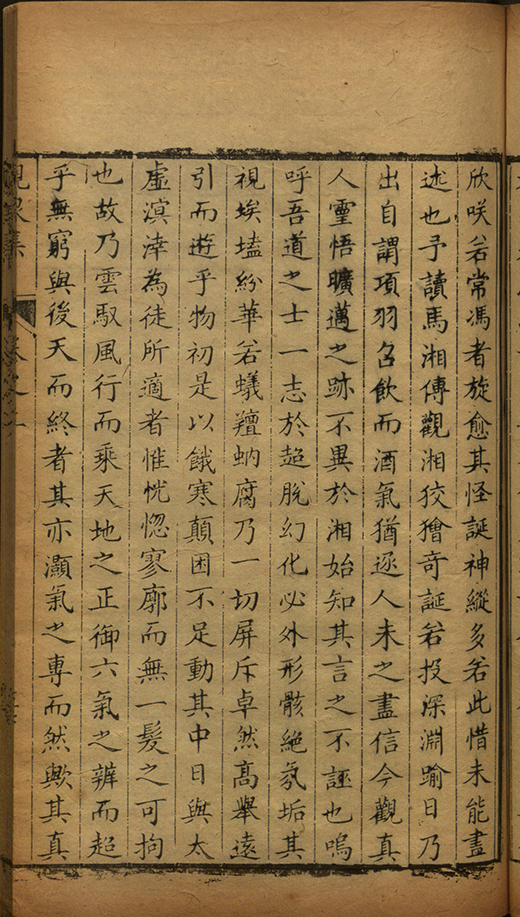 欣咲若常馮者旋愈其怪誕神縱多若此惜未能盡
述也予讀馬湘傳觀湘狡獪奇誕若投深淵踰日乃
出自謂項羽召飲而酒氣猶逐人未之盡信今觀真
人靈悟曠邁之跡不異於湘始知其言之不誣也嗚
呼吾道之士一志於超脫幻化必外形骸絶氛垢其
視埃壒紛華若蟻羶蚋腐乃一切屏斥卓然髙舉遠
引而遊乎物初是以餓寒顛困不足動其中日與太
虛溟涬為徒所適者惟恍惚寥廓而無一髮之可拘
也故乃雲馭風行而乘天地之正御六氣之辨而超
乎無窮與後天而終者其亦灝氣之專而然歟其真